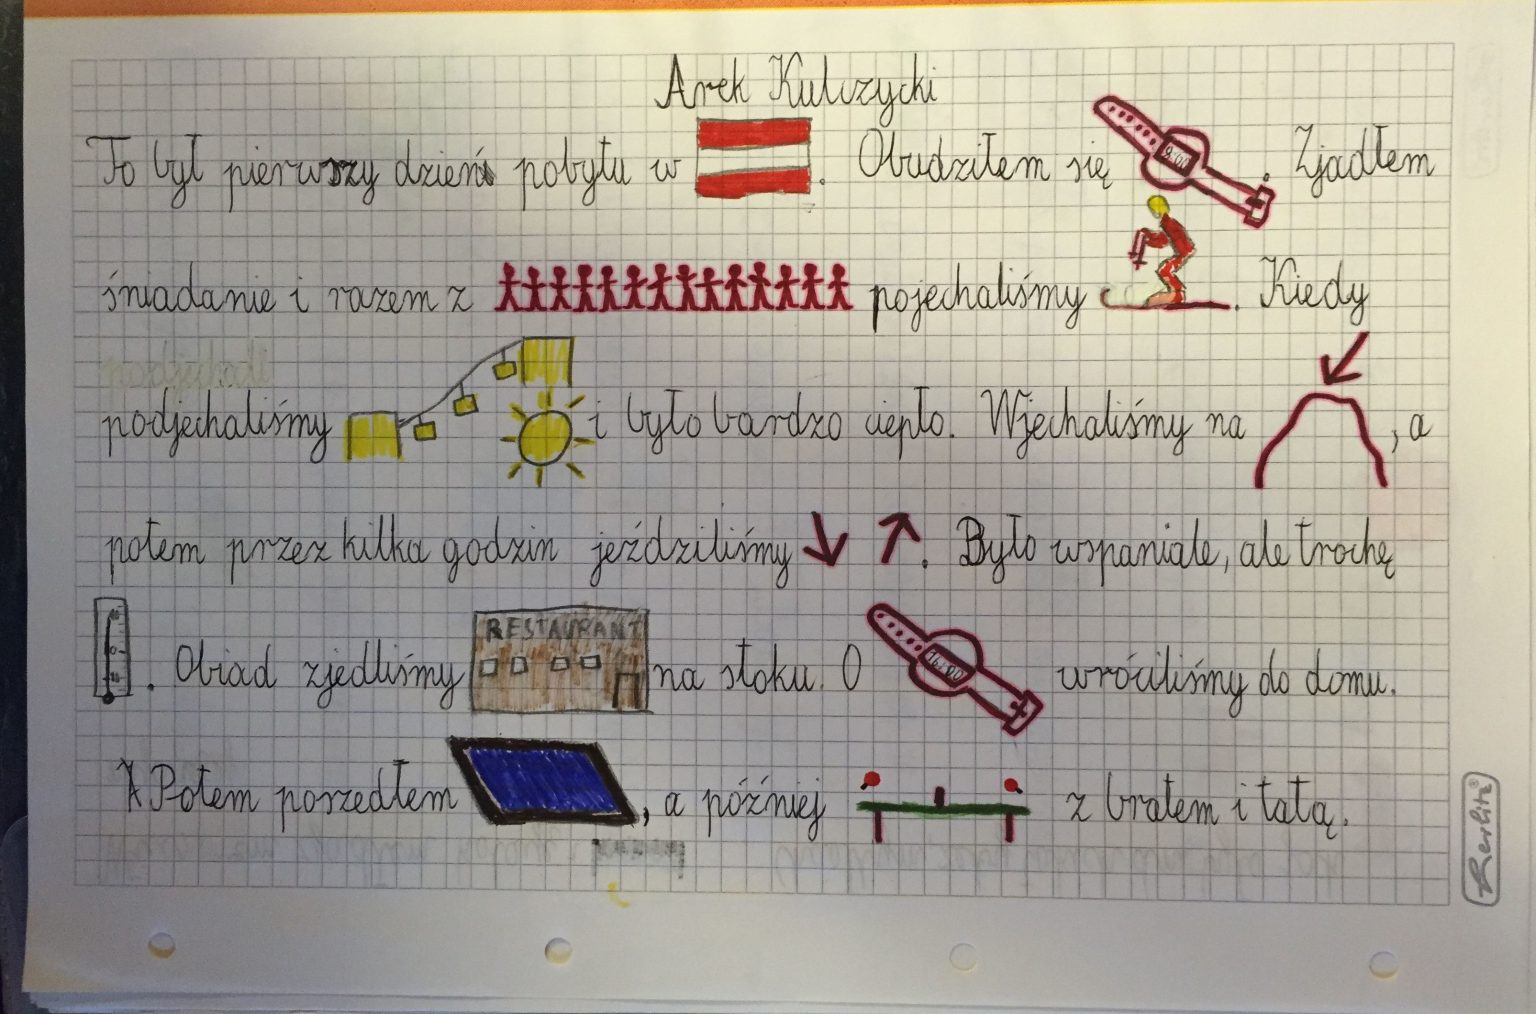 Arek Kulczycki
To był pierwszy dzień pobytu w . Obudziłem się 9:00 . Zjadłem
śniadanie i razem z pojechaliśmy . Kiedy
podjechaliśmy i było bardzo ciepło. Wjechaliśmy na , a
potem przez kilka godzin jeździliśmy . Było wspaniale, ale trochę
. Obiad zjedliśmy RESTAURANT na stoku. O 16:00 wróciliśmy do domu.
Potem poszedłem , a później z bratem i tatą.
Herlitz